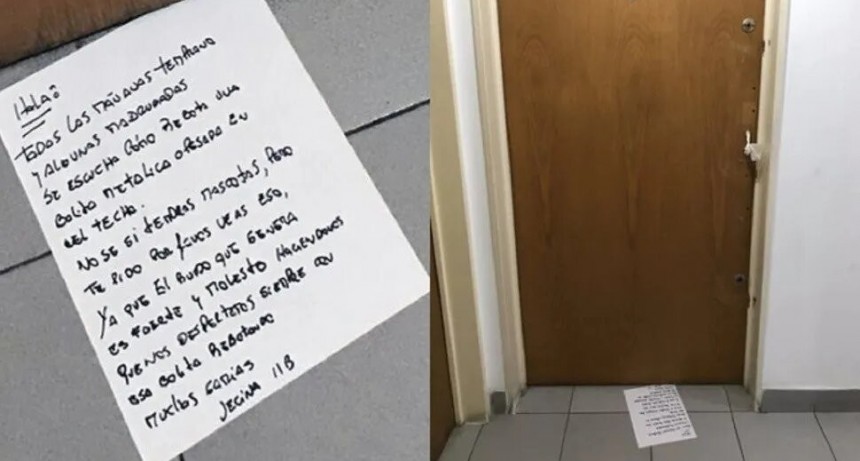 Hola:
TODAS LAS MAÑANAS TEMPRANO
Y ALGUNAS MADRUGADAS
SE ESCUCHA CÓMO REBOTA UNA
BOLITA METALICA O PESADA EN
EL TECHO.
NO SE SI TENDRAS MASCOTAS, PERO
TE PIDO POR FAVOR VEAS ESO,
YA QUE EL RUIDO QUE GENERA
ES FUERTE Y MOLESTO HACIENDONOS
QUE NOS DESPERTEMOS SIEMPRE CON
ESA BOLITA REBOTANDO
MUCHAS GRACIAS
VECINA 11B